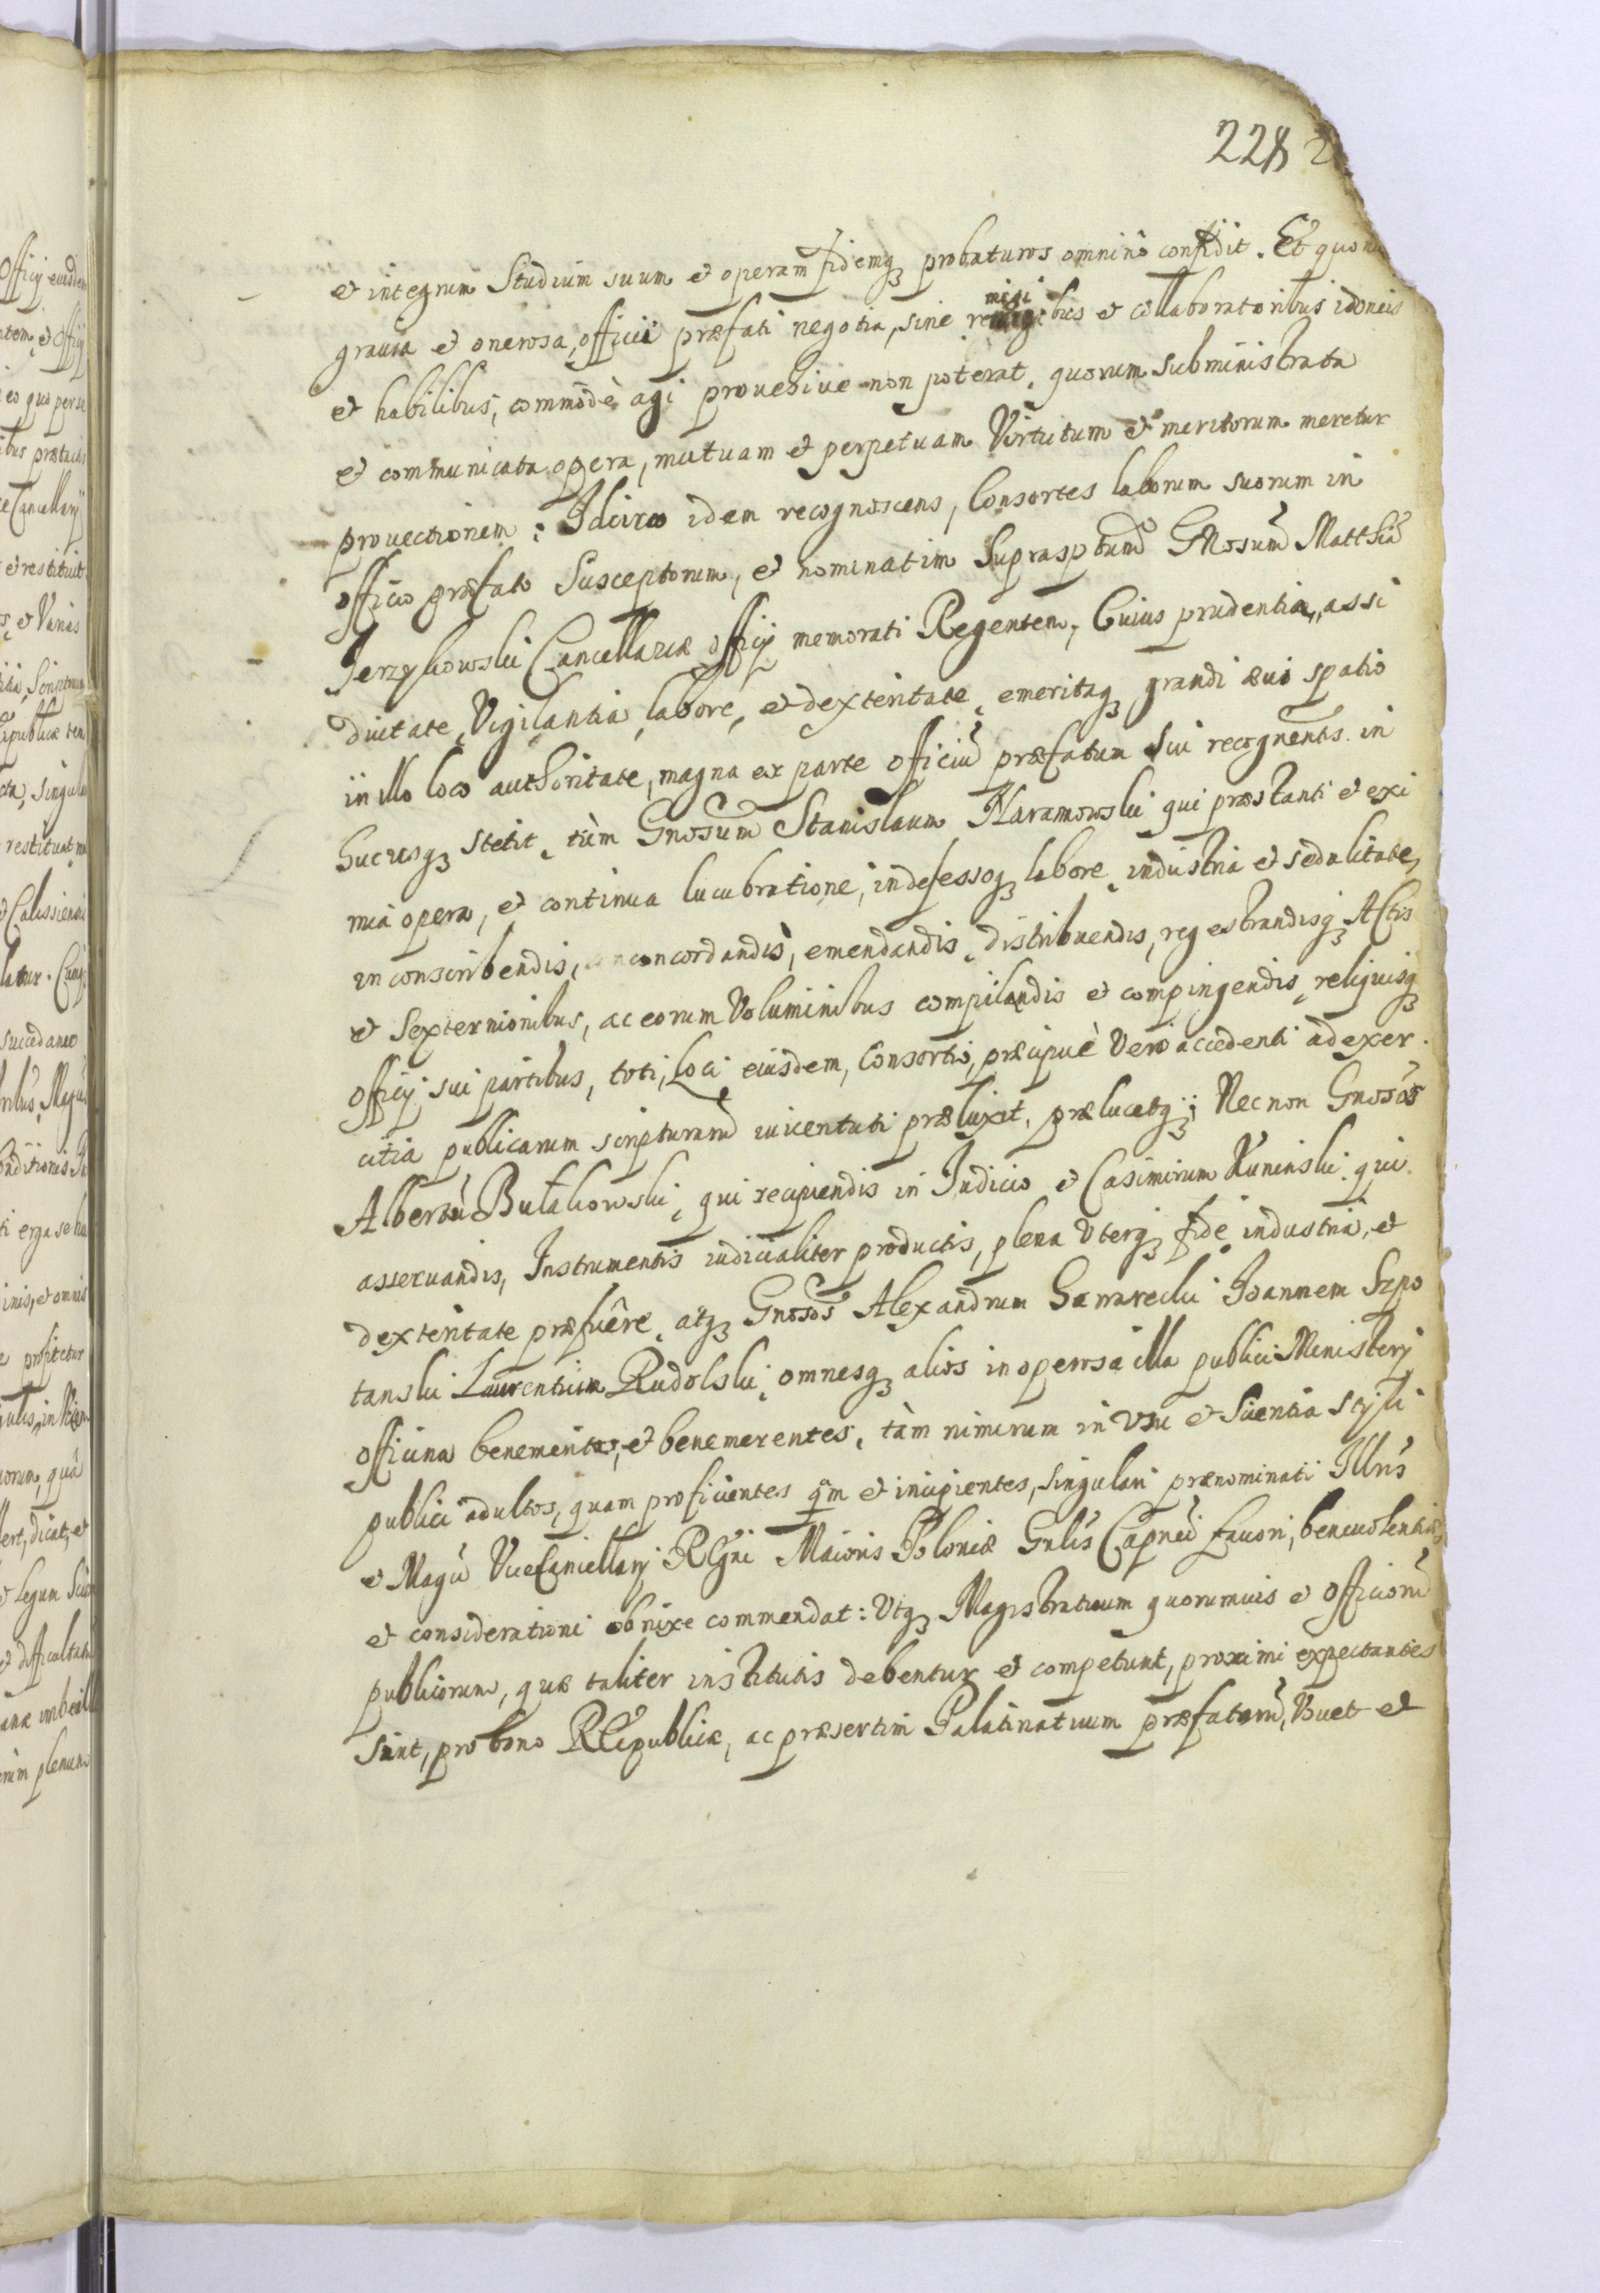 228
et integrum Studium suum et operam fidemq3 probaturos omnino confidit. Et quon
grauia et onerosa officii præfati negotia, sine remigibus et collaboratoribus idoneis
et habilibus, commodè agi prouehiue non poterat, quorum subministrata
et communicata opera, mutuam et perpetuam Virtutum et meritorum meretur
prouectionem: Idcirco idem recognoscens, Consortes laborum suorum in
officio præfato Susceptorum, et nominatim Suprasptum Gnosum Matthiã
Jerzykowski Cancellariæ officij memorati Regentem, Cuius prudentia, assi
duitate, Vigilantia, labore, et dexteritate, emeritaq3 grandi æui spatio
in illo loco authoritate, magna ex parte officiũ præfatum sui recognentis in
hucusq3 stetit, tùm Gnosum Stanislaum Naramowski qui præstanti et exi
mia opera, et continua lucubratione, indefessoq3 labore, industria et sedulitate,
in conscribendis, concordandis, emendandis, distribuendis, regestrandisq3 Actis
et Sexternionibus, ac eorum Voluminibus compilandis et compingendis, reliquisq3
officij sui partibus, toti, Loci eiusdem, Consortio, præcipuè Vero accedenti ad exer
citia publicarum scripturarũ iuuentuti præluxit, prælucetq3; Nec non Gnosos
Albertũ Butakowski, qui recipiendis in Judicio et Casimirum Kuninski qui
asseruandis, Instrumentis iudicialiter productis, plena Uterq3 fide, industria, et
dexteritate præfuêre, atq3 Gnosos Alexandrum Joannem Szpo
tanski Laurentium Rudolski, omnesq3 alios in operosa illa publici Ministerij
officina benemeritos, et benemerentes, tàm nimirum in usu et Scientia styli
publici adultos, quam proficientes qm et incipientes, singulari prænominati Illris
et Magci ViceCancellarij RGni Maioris Poloniæ Gnlis Capnei fauori, beneuolentiæ,
et considerationi obnixe commendat: Utq3 Magistratuum quorumuis et officiorũ
publicorum, quæ taliter institutis debentur et competunt, proximi expectantes
sint, pro bono REipublicæ, ac præsertim Palatinatuum præfatorũ, Vouet et